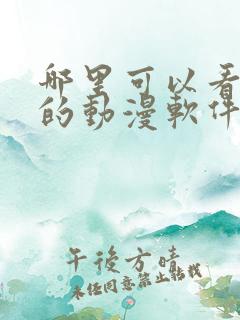 哪里可以看
的動漫軟件
午後方晴
未经同意禁止转载